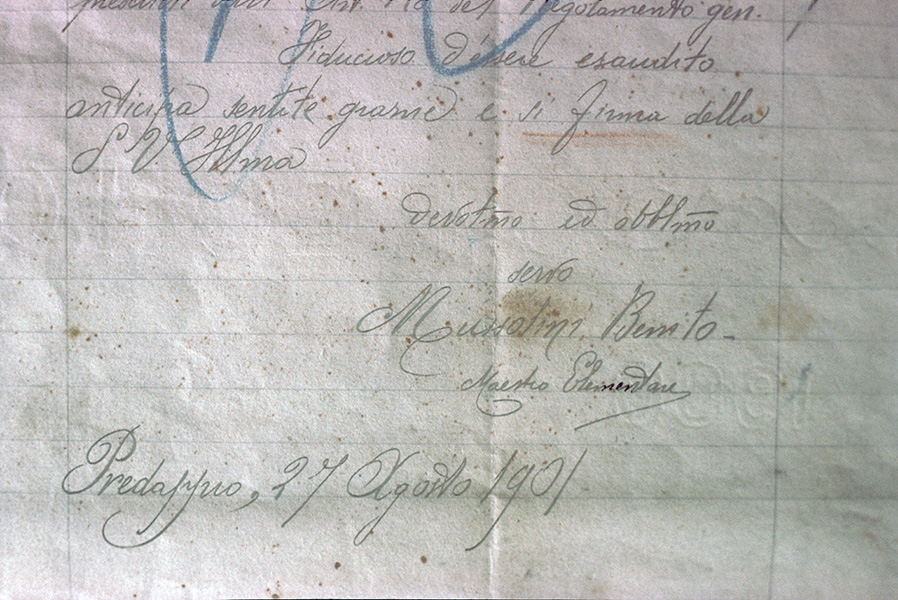 prescritti dall' Art. 116 del Regolamento gen.
Fiducioso d'essere esaudito
anticipa sentite grazie e si firma della
S. V. Illma
devotmo ed obblmo
servo
Mussolini Benito -
Maestro Elementare
Predappio, 27 Agosto 1901